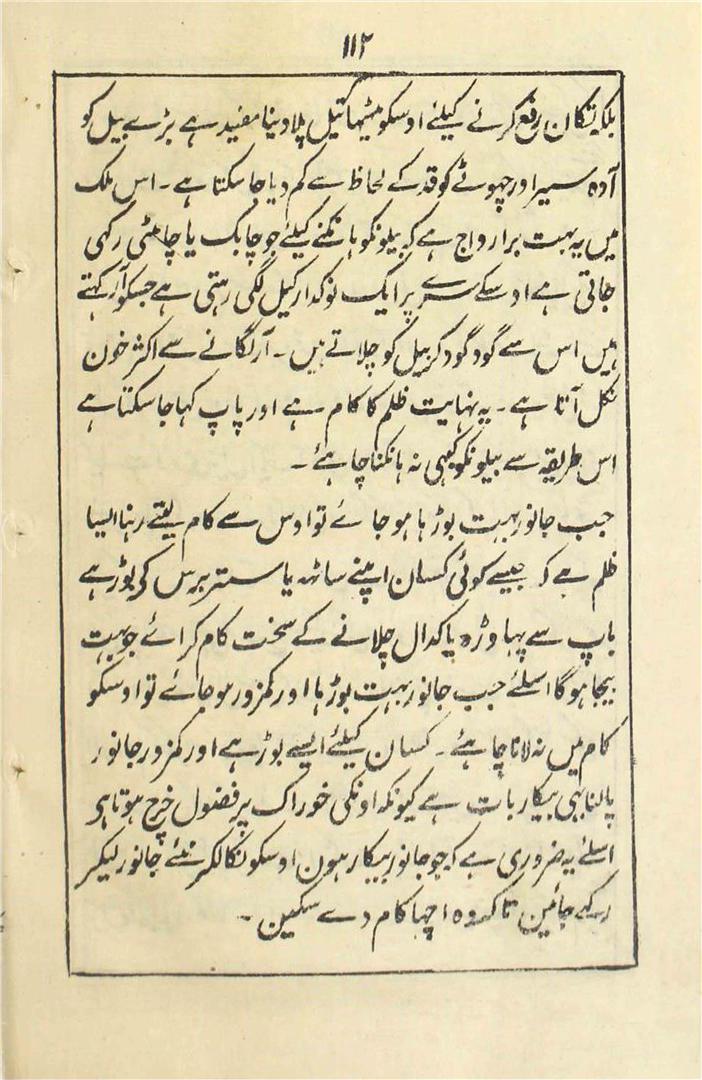 ۱۱۲
بلکہ تکان رفع کرنے کیلئے اوسکو میٹھا تیل پلا دینا مفید ہے بڑے بیل کو
آدہ سیر اور چہوٹے کو قد کے لحاظ سے کم دیا جا سکتا ہے ۔ اس ملک
میں یہ بہت برا رواج ہے کہ بیلونکو ہانکنے کیلئے جو چابک یا چامٹی رکہی
جاتی ہے اوسکے سرے پر ایک نوکدار کیل لگی رہتی ہے جسکو آر کہتے
ہیں اس سے گود گود کر بیل کو چلاتے ہیں ۔ آر لگانے سے اکثر خون
نکل آتا ہے ۔ یہ نہایت ظلم کا کام ہے اور پاپ کہا جا سکتا ہے
اس طریقہ سے بیلونکو کبہی نہ ہانکنا چاہئے ۔
جب جانور بہت بوڑہا ہو جائے تو اوس سے کام لیتے رہنا ایسا
ظلم ہے کہ جیسے کوئی کسان اپنے ساٹہہ یا ستر برس کی بوڑہے
باپ سے پہاوڑہ یا کدال چلانے کے سخت کام کرائے جو بہت
بیجا ہوگا اسلئے جب جانور بہت بوڑہا اور کمزور ہو جائے تو اوسکو
کام میں نہ لانا چاہئے ۔ کسان کیلئے ایسے بوڑہے اور کمزور جانور
پالنا بہی بیکار بات ہے کیونکہ اونکی خوراک پر فضول خرچ ہوتا ہی
اسلئے یہ ضروری ہے کہ جو جانور بیکار ہون اوسکو نکالکر نئے جانور لیکر
رکہے جائین تاکہ وہ اچہا کام دے سکین ۔